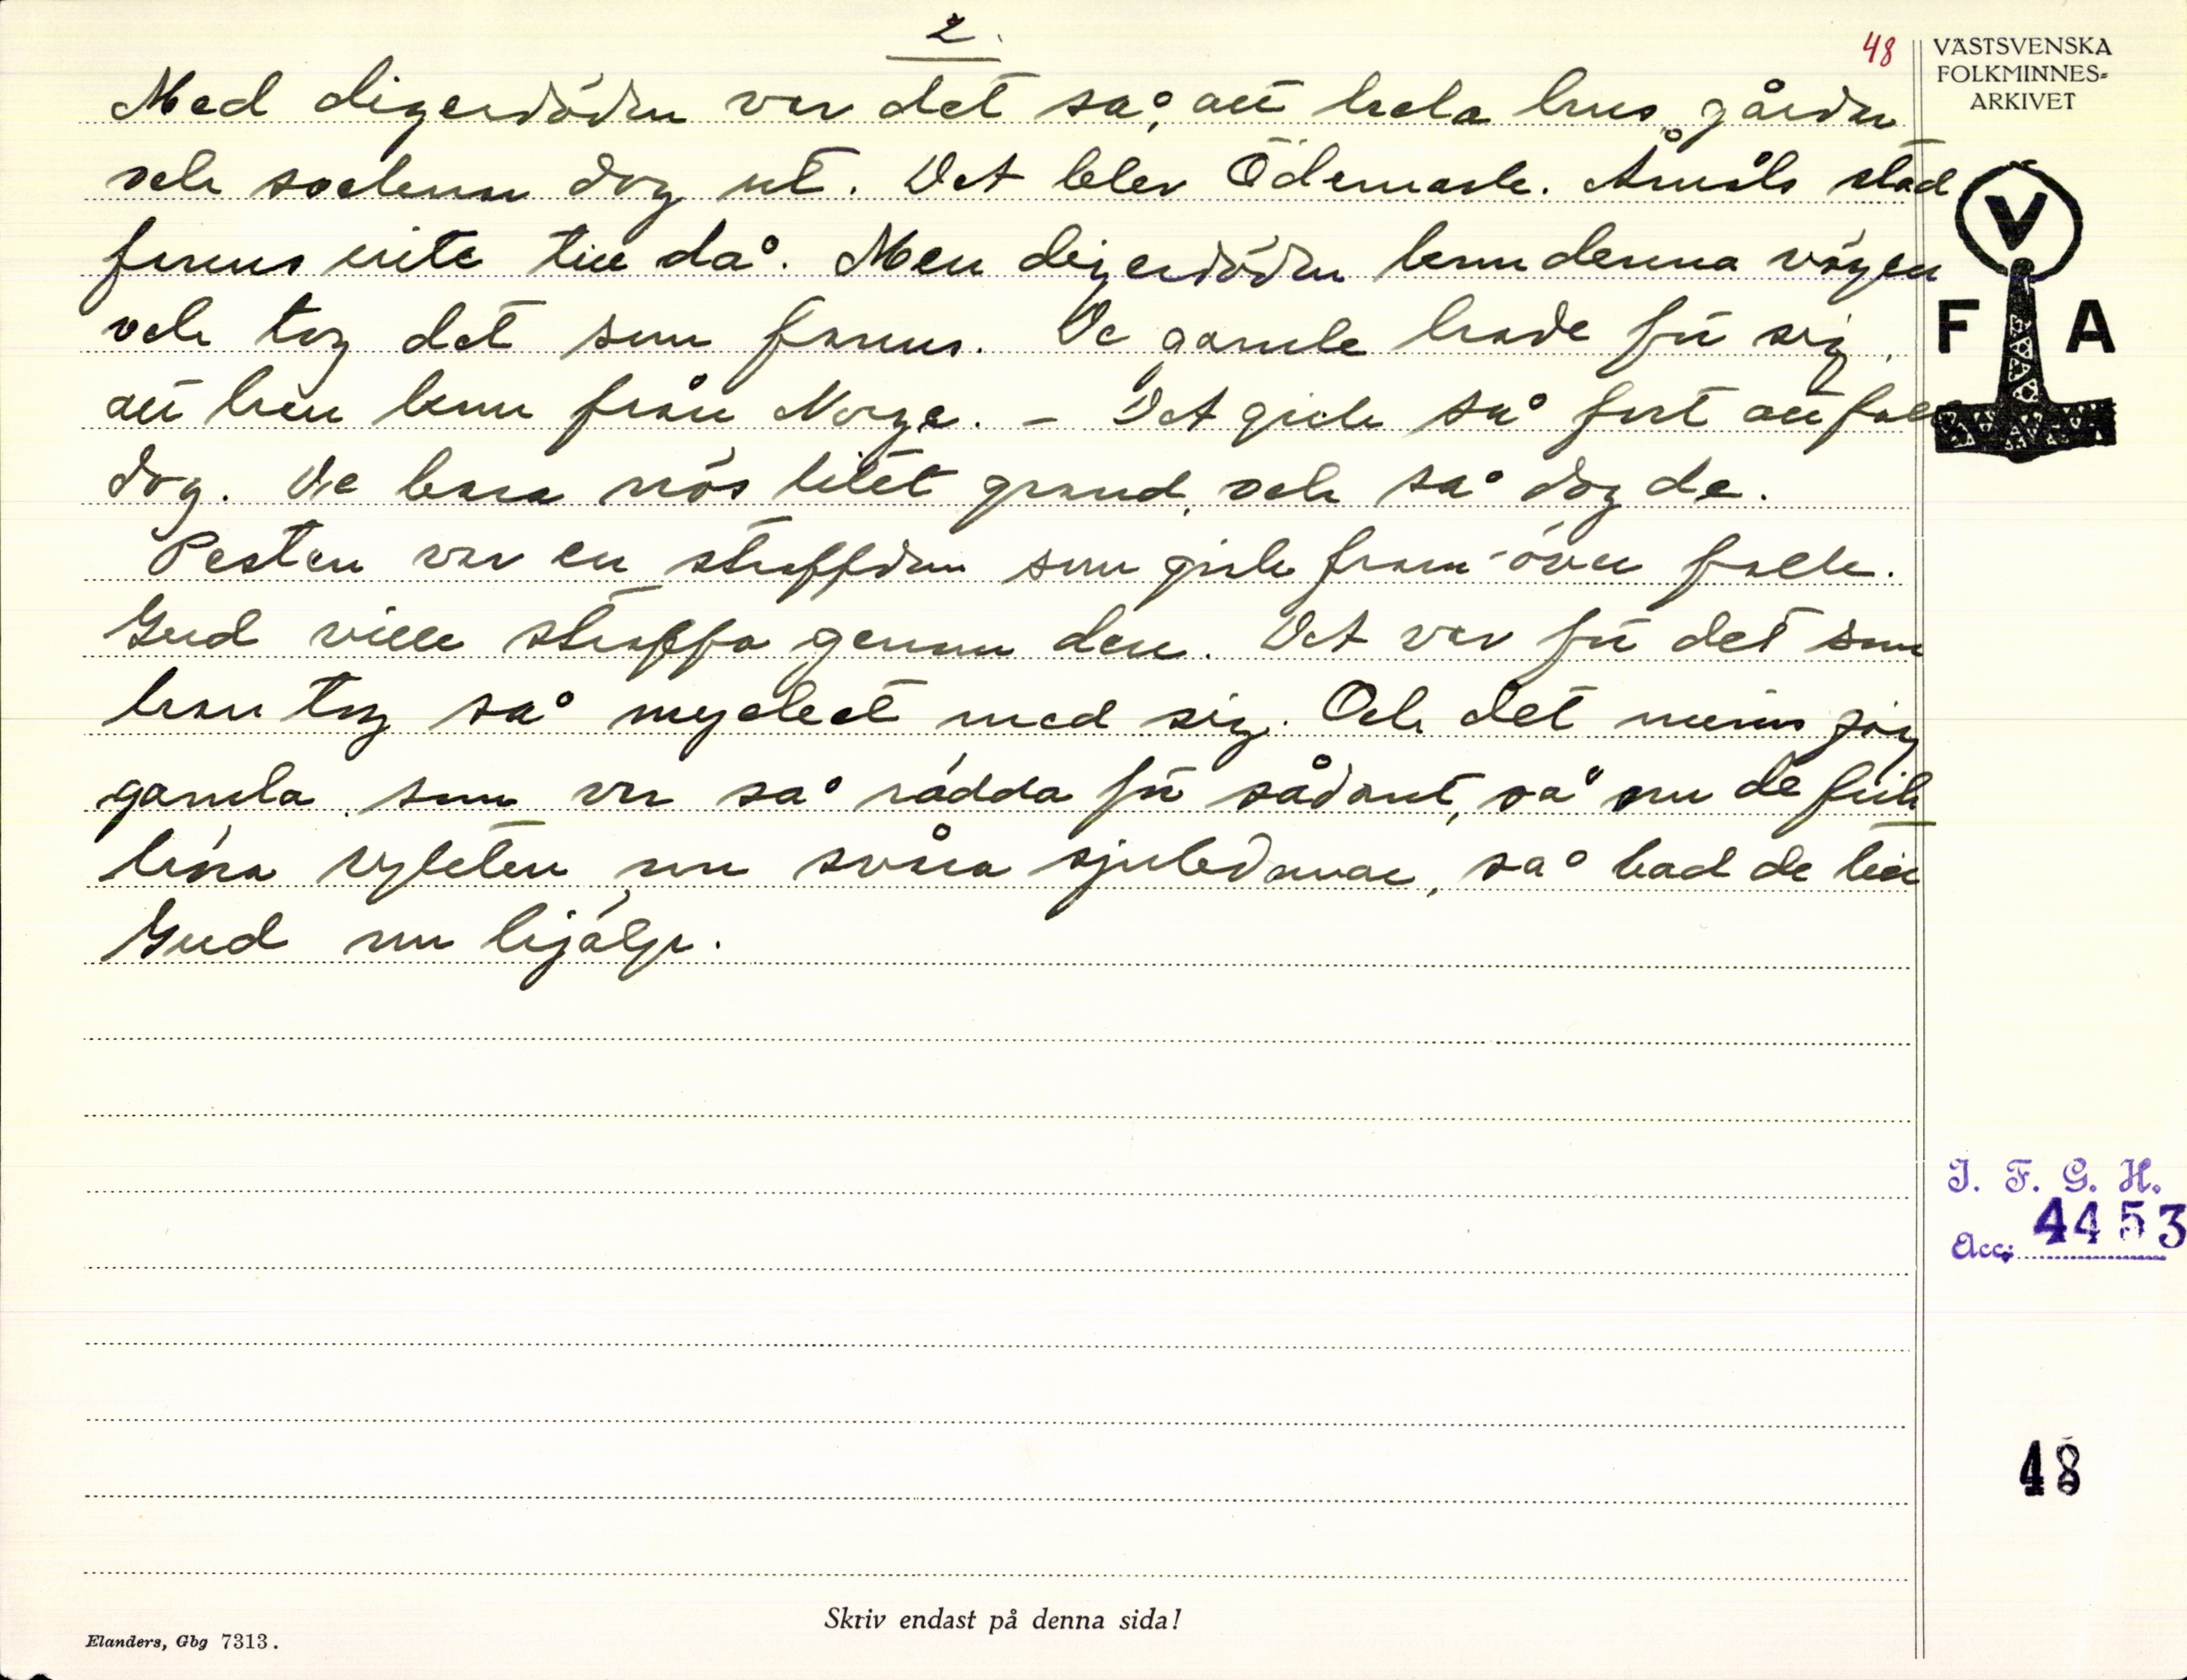 2.
48
VÄSTSVENSKA
FOLKMINNES-
ARKIVET
Med digerdöden var det så, att hela hus, gårdar
och socknar dog ut. Det blev Ödemark. Åmåls stad
fanns inte till då. Men digerdöden kom denna vägen
och tog det som fanns. De gamle hade för sig,
att hon kom från Norge. – Det gick så fort att folk
dog. De bara nös litet grand, och så dog de.
Pesten var en straffdom som gick fram över folk.
Gud ville straffa genom den. Det var för det som
han tog så mycket med sig. Och det minns jag
gamla, som var så rädda för sådant, så om de fick
höra rykten om svåra sjukdomar, så bad de till
Gud om hjälp.
V
F A
I. F. G. H.
Acc. 4453
48
Skriv endast på denna sida!
Elanders, Gbg 7313.